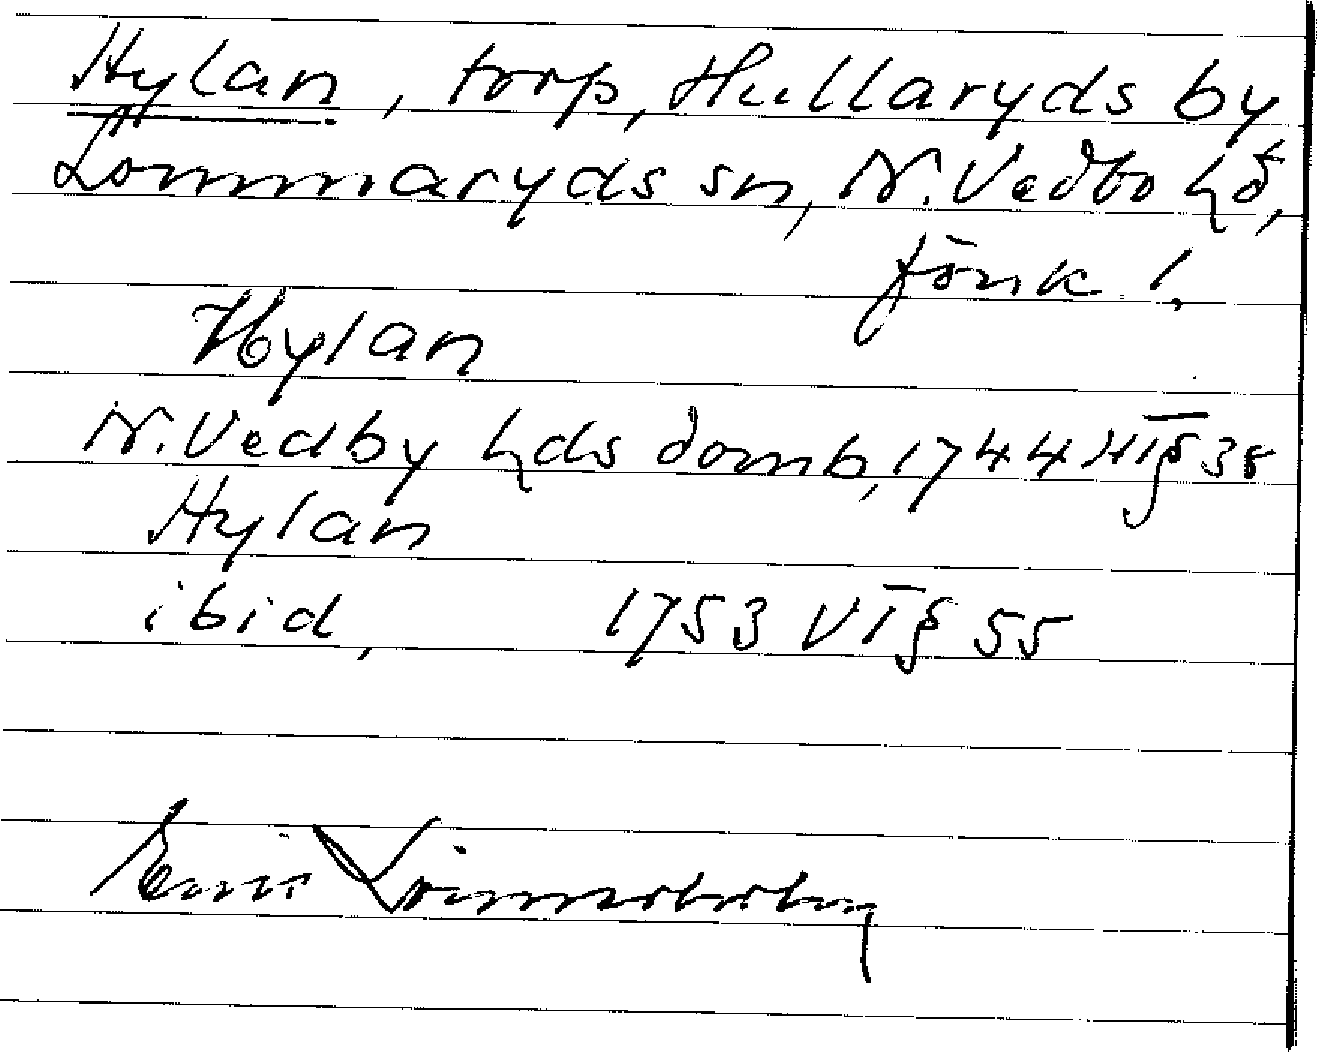 Hylan, torp, Hullaryds by
Lommaryds sn, N. Vedbo hd,
Jönk l.
Hylan
N. Vedby hds domb, 1744 § 38
Hylan
ibid, 1753 VI § 55